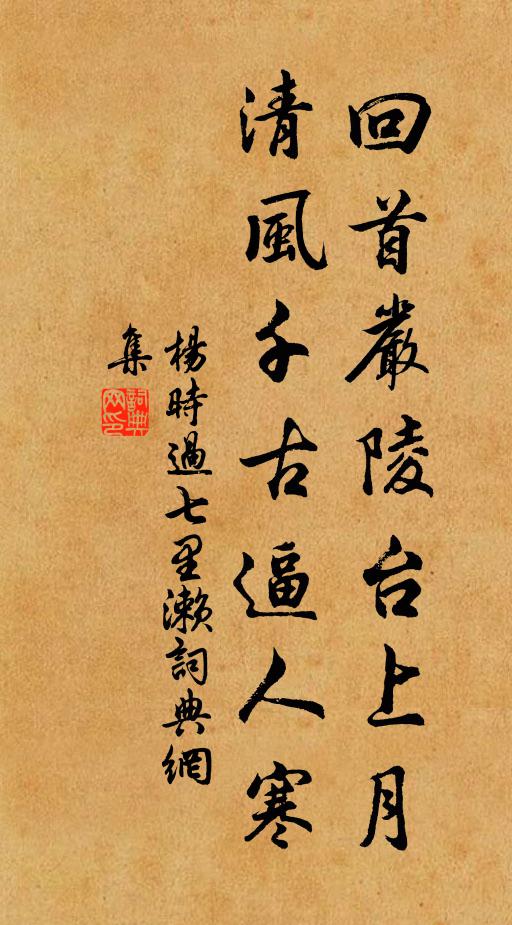 回首嚴陵台上月
清風千古逼人寒
楊時過七里瀨詞典網
集
詞典
网印